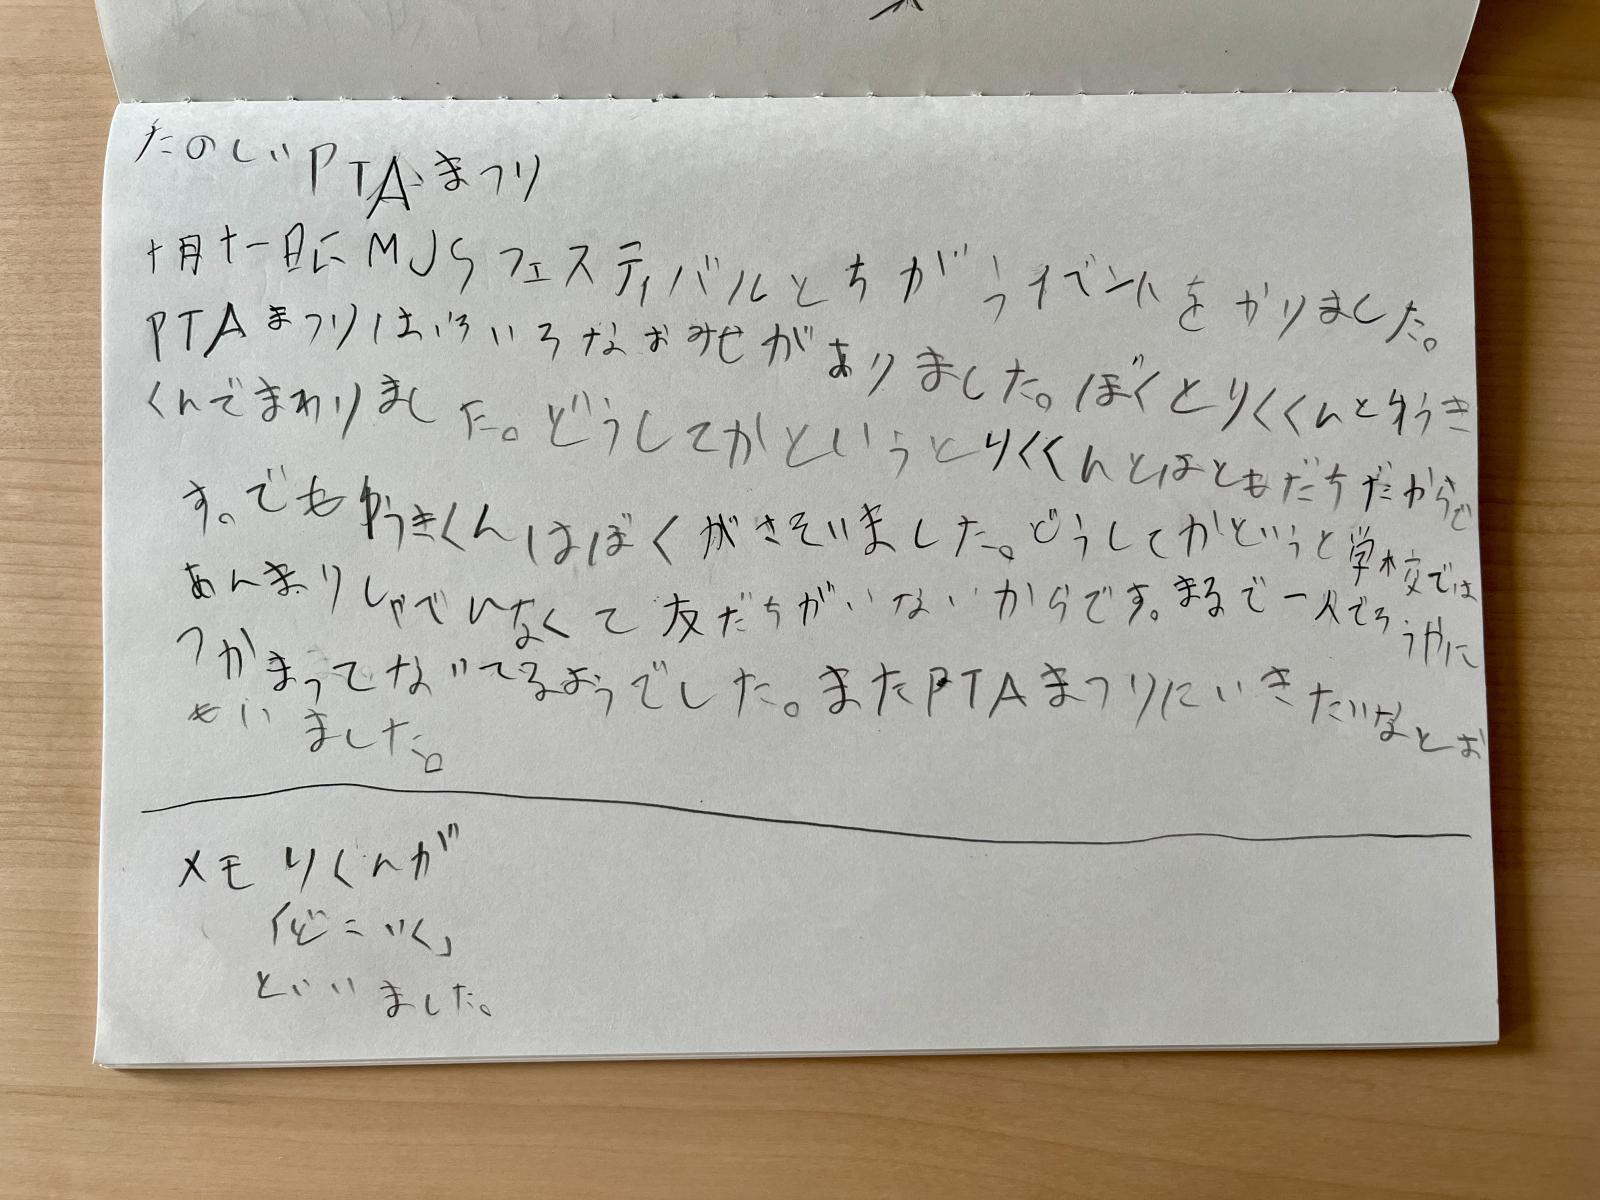 たのしいPTAまつり
十月十一日にMJSフェスティバルとちがうイベントをかりました。
PTAまつりはいろいろなおみせがありました。ぼくとりくくんとゆうき
くんでまわりました。どうしてかというとりくくんとはともだちだからで
す。でもゆうきくんはぼくがさそいました。どうしてかというと学校では
あんまりしゃべいなくて友だちがいないからです。まるで一人でろうやに
つかまってないてるようでした。またPTAまつりにいきたいなとお
もいました。
メモ りくんが
「どこいく」
といいました。